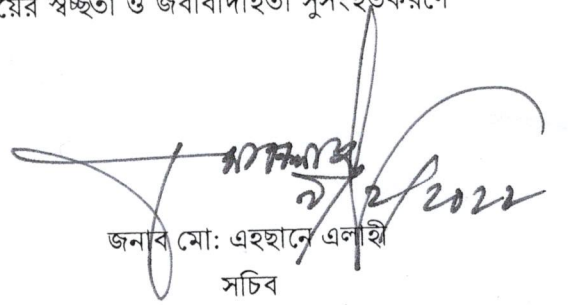 স্বচ্ছতা ও জবাবদিহিতা সুসংহতকরণে
2/2022
জনাব মো: এহছানে এলাহী
সচিব